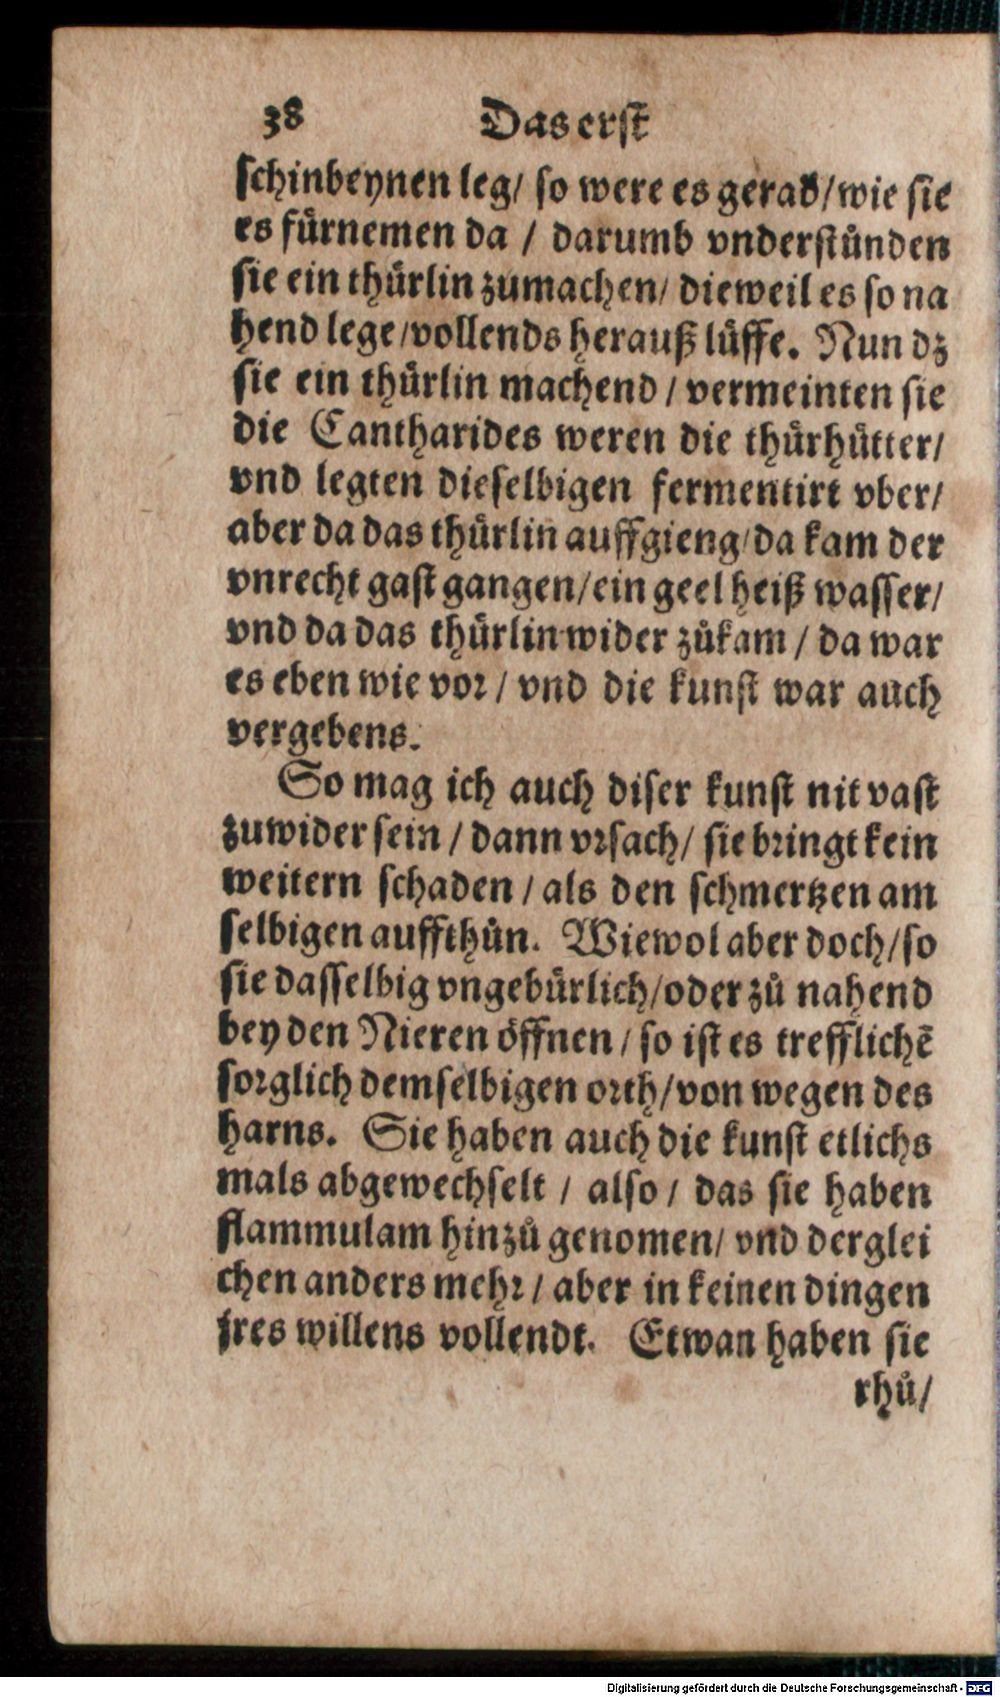 38 Das erst
schinbeynen leg/ so were es gerad/wie sie
es fürnemen da / darumb vnderstünden
sie ein thürlin zumachen/ dieweil es so na
hend lege/vollends herauß lüffe. Nun dz
sie ein thürlin machend / vermeinten sie
die Cantharides weren die thürhütter/
vnd legten dieselbigen fermentirt vber/
aber da das thürlin auffgieng/da kam der
vnrecht gast gangen/ein geel heiß wasser/
vnd da das thürlin wider zůkam / da war
es eben wie vor / vnd die kunst war auch
vergebens.
So mag ich auch diser kunst nit vast
zuwider sein / dann vrsach/ sie bringt kein
weitern schaden / als den schmertzen am
selbigen auffthůn. Wiewol aber doch/so
sie dasselbig vngebürlich/oder zů nahend
bey den Nieren öffnen / so ist es trefflichē
sorglich demselbigen orth/von wegen des
harns. Sie haben auch die kunst etlichs
mals abgewechselt / also / das sie haben
flammulam hinzů genomen/ vnd derglei
chen anders mehr / aber in keinen dingen
jres willens vollendt. Etwan haben sie
rhů/
Digitalisierung gefördert durch die Deutsche Forschungsgemeinschaft - DFG